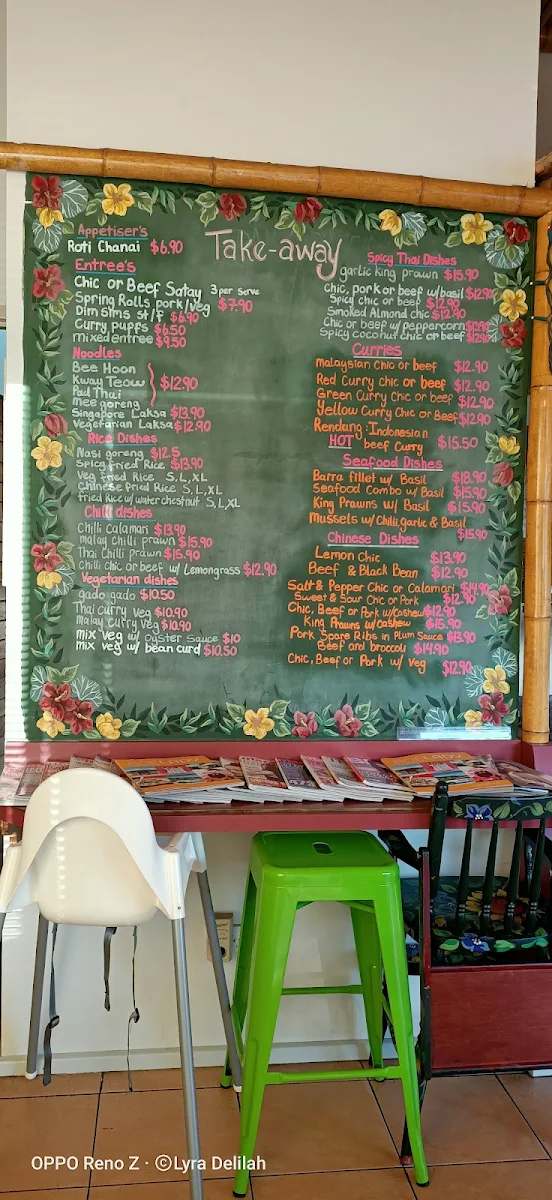 Take-away
Appetiser's
Roti Chanai $6.90
Entree's
Chic or Beef Satay 3 per serve
Spring Rolls pork/veg $7.90
Dim sims st/f $6.90
Curry puffs $6.50
mixed entree $9.50
Noodles
Bee Hoon
Kway Teow $12.90
Pad Thai
mee goreng
Singapore Laksa $13.90
Vegetarian Laksa $12.90
Rice Dishes
Nasi goreng $12.5
Spicy fried Rice $13.90
Veg fried Rice S, L, XL
Chinese fried Rice S, L, XL
fried Rice w/ water chestnut S, L, XL
Chilli dishes
Chilli Calamari $13.90
malay Chilli prawn $15.90
Thai Chilli prawn $15.90
Chilli chic or beef w/ Lemongrass $12.90
Vegetarian dishes
gado gado $10.50
Thai curry veg $10.90
malay curry veg $10.90
mix veg w/ oyster Sauce $10
mix veg w/ bean curd $10.50
Spicy Thai Dishes
garlic king prawn $15.90
Chic, pork or beef w/basil $12.90
Spicy chic or beef $12.90
Smoked Almond chic $12.90
Chic or beef w/ peppercorn
Spicy coconut chic or beef
Curries
malaysian Chic or beef $12.90
Red Curry chic or beef $12.90
Green Curry Chic or beef $12.90
Yellow Curry Chic or Beef $12.90
Rendang: Indonesian
HOT beef Curry $15.50
Seafood Dishes
Barra fillet w/ Basil $18.90
Seafood Combo w/ Basil $15.90
King Prawns w/ Basil $15.90
Mussels w/ Chilli, garlic & Basil $15.90
Chinese Dishes
Lemon Chic $13.90
Beef & Black Bean $12.90
Salt & Pepper Chic or Calamari $14.90
Sweet & Sour Chic or Pork $12.90
Chic, Beef or Pork w/cashew $12.90
King Prawns w/ cashew $15.90
Pork Spare Ribs in Plum Sauce $13.90
Beef and broccoli $14.90
Chic, Beef or Pork w/ Veg $12.90
OPPO Reno Z · ©Lyra Delilah